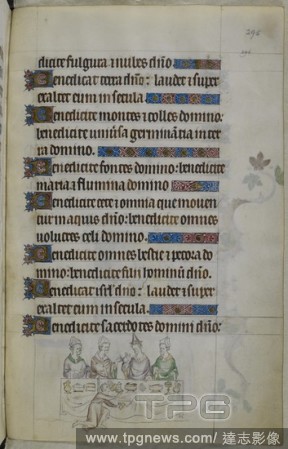 296
dicite fulgura ⁊ nubes dño.
Benedicat terra dñ̄o: laudet ⁊ super
exaltet eum in secula.
Benedicite montes ⁊ colles domino:
benedicite uniũsa germinãcia in ter
ra domino.
Benedicite fontes domino: benedicite
maria ⁊ flumina domino
Benedicite cete ⁊ omnia que mouen
tur in aquis dño: benedicite omnes
uolucres celi domino.
Benedicite omnes bestie ⁊ pecora do
mino: benedicite filii hominũ dño.
Benedicat isrl' dño: laudet ⁊ super
exaltet eum in secula.
Benedicite sacerdotes domini dño:
TPG
www.tpgnews.com/ 達志影像